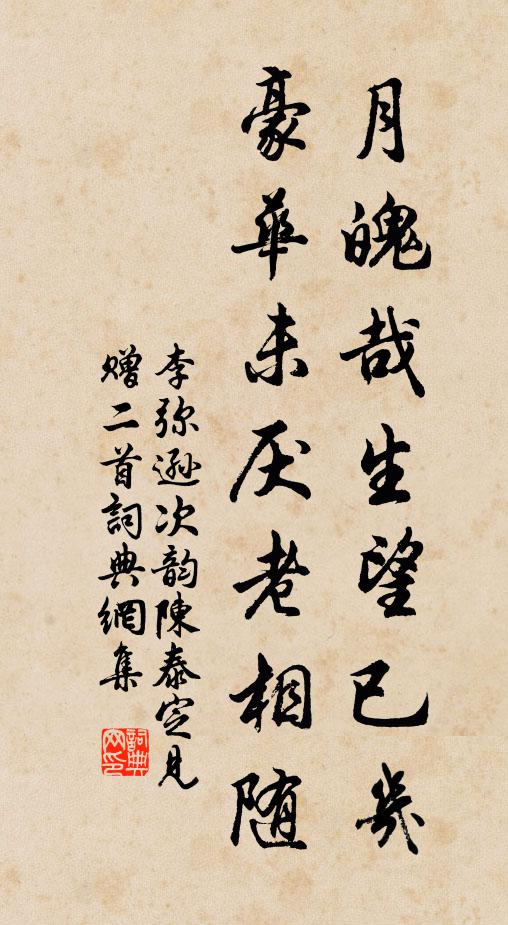 月魄哉生望已幾
豪華未厌老相随
李弥遜次韵陳泰定見
赠二首詞典網集
詞典
网印